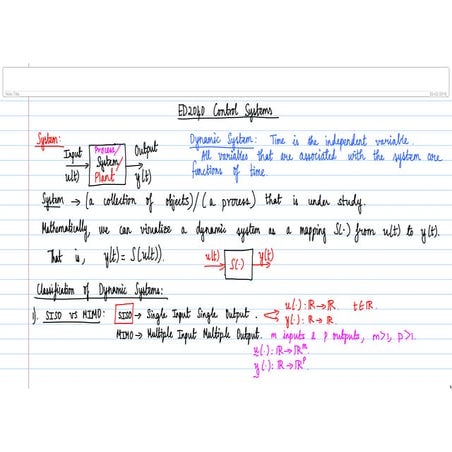 ED2040 Control Systems
System:
Input
u(t)
Process/
System
Plant/
Output
y(t)
Dynamic System: Time is the independent variable.
All variables that are associated with the system are
functions of time.
System → (a collection of objects)/(a process) that is under study.
Mathematically, we can visualize a dynamic system as a mapping S(·) from u(t) to y(t).
That is, y(t) = S(u(t)).
u(t)
S(·)
y(t)
Classification of Dynamic Systems:
1). SISO vs MIMO: SISO → Single Input Single Output.
u(·): ℝ → ℝ. t∈ℝ.
y(·): ℝ → ℝ.
MIMO → Multiple Input Multiple Output. m inputs & p outputs, m>1, p>1.
u(·): ℝ → ℝᵐ.
y(·): ℝ → ℝᵖ.